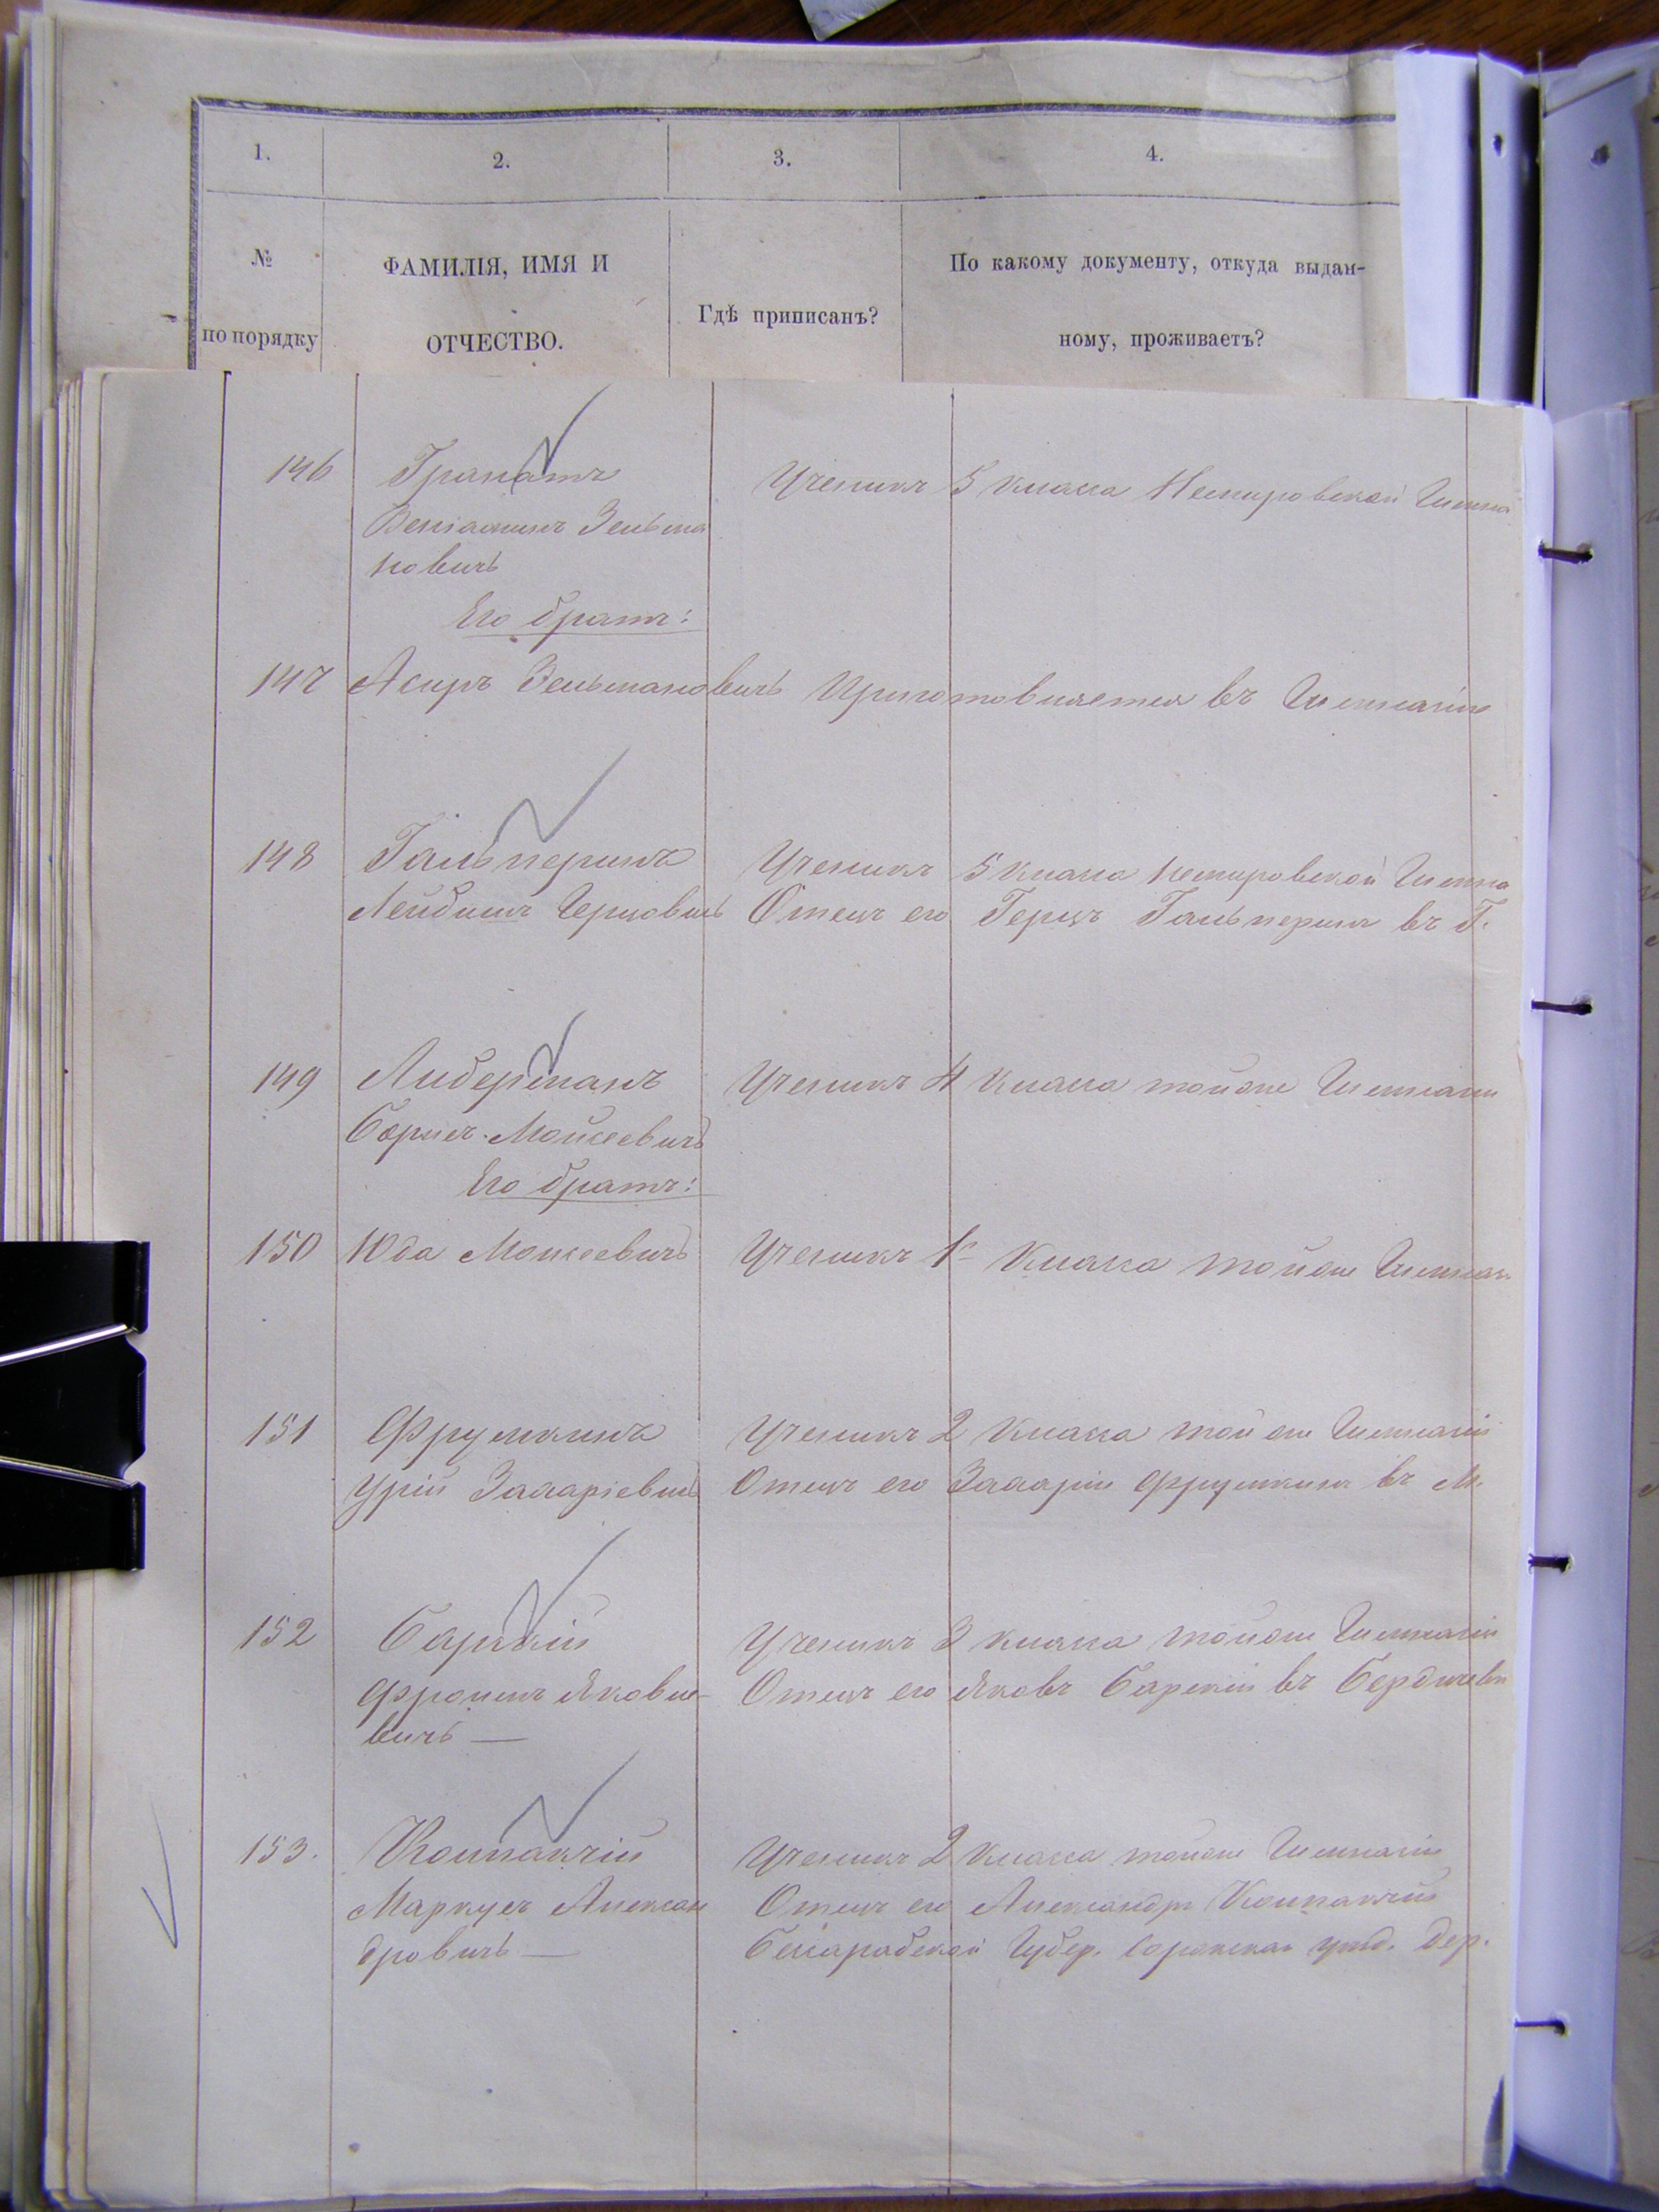 1.
2.
3.
4.
№
по порядку
ФАМИЛІЯ, ИМЯ И
ОТЧЕСТВО.
Гдѣ приписанъ?
По какому документу, откуда выдан-
ному, проживаетъ?
146 Гранатъ Ученикъ 5 класса Немировской Гимна
Веніаминъ Зельма
новичъ
Его братъ:
147 Асиръ Зельмановичъ Приготовляется въ Гимназію
148 Гальперинъ Ученикъ 5 класса Немировской Гимна
Лейбишъ Герцовичъ Отецъ его Герцъ Гальперинъ въ Г.
149 Либерманъ Ученикъ 4 класса тойже Гимназіи
Борисъ Мойсеевичъ
Его братъ:
150 Юда Моисеевичъ Ученикъ 1 класса тойже Гимназ
151 Фрумкинъ Ученикъ 2 класса той же Гимназіи
Урій Захаріевичъ Отецъ его Захарій Фрумкинъ въ М.
152 Барскій Ученикъ 3 класса тойже Гимназіи
Яковле-
вичъ — Отецъ его Яковъ Барскій въ Бердичевѣ
153. Ученикъ 2 класса тойже Гимназіи
Маркусъ Алексан Отецъ его Александръ
дровичъ — Бессарабской Губер. Сорокскаго уѣзд. Дер.